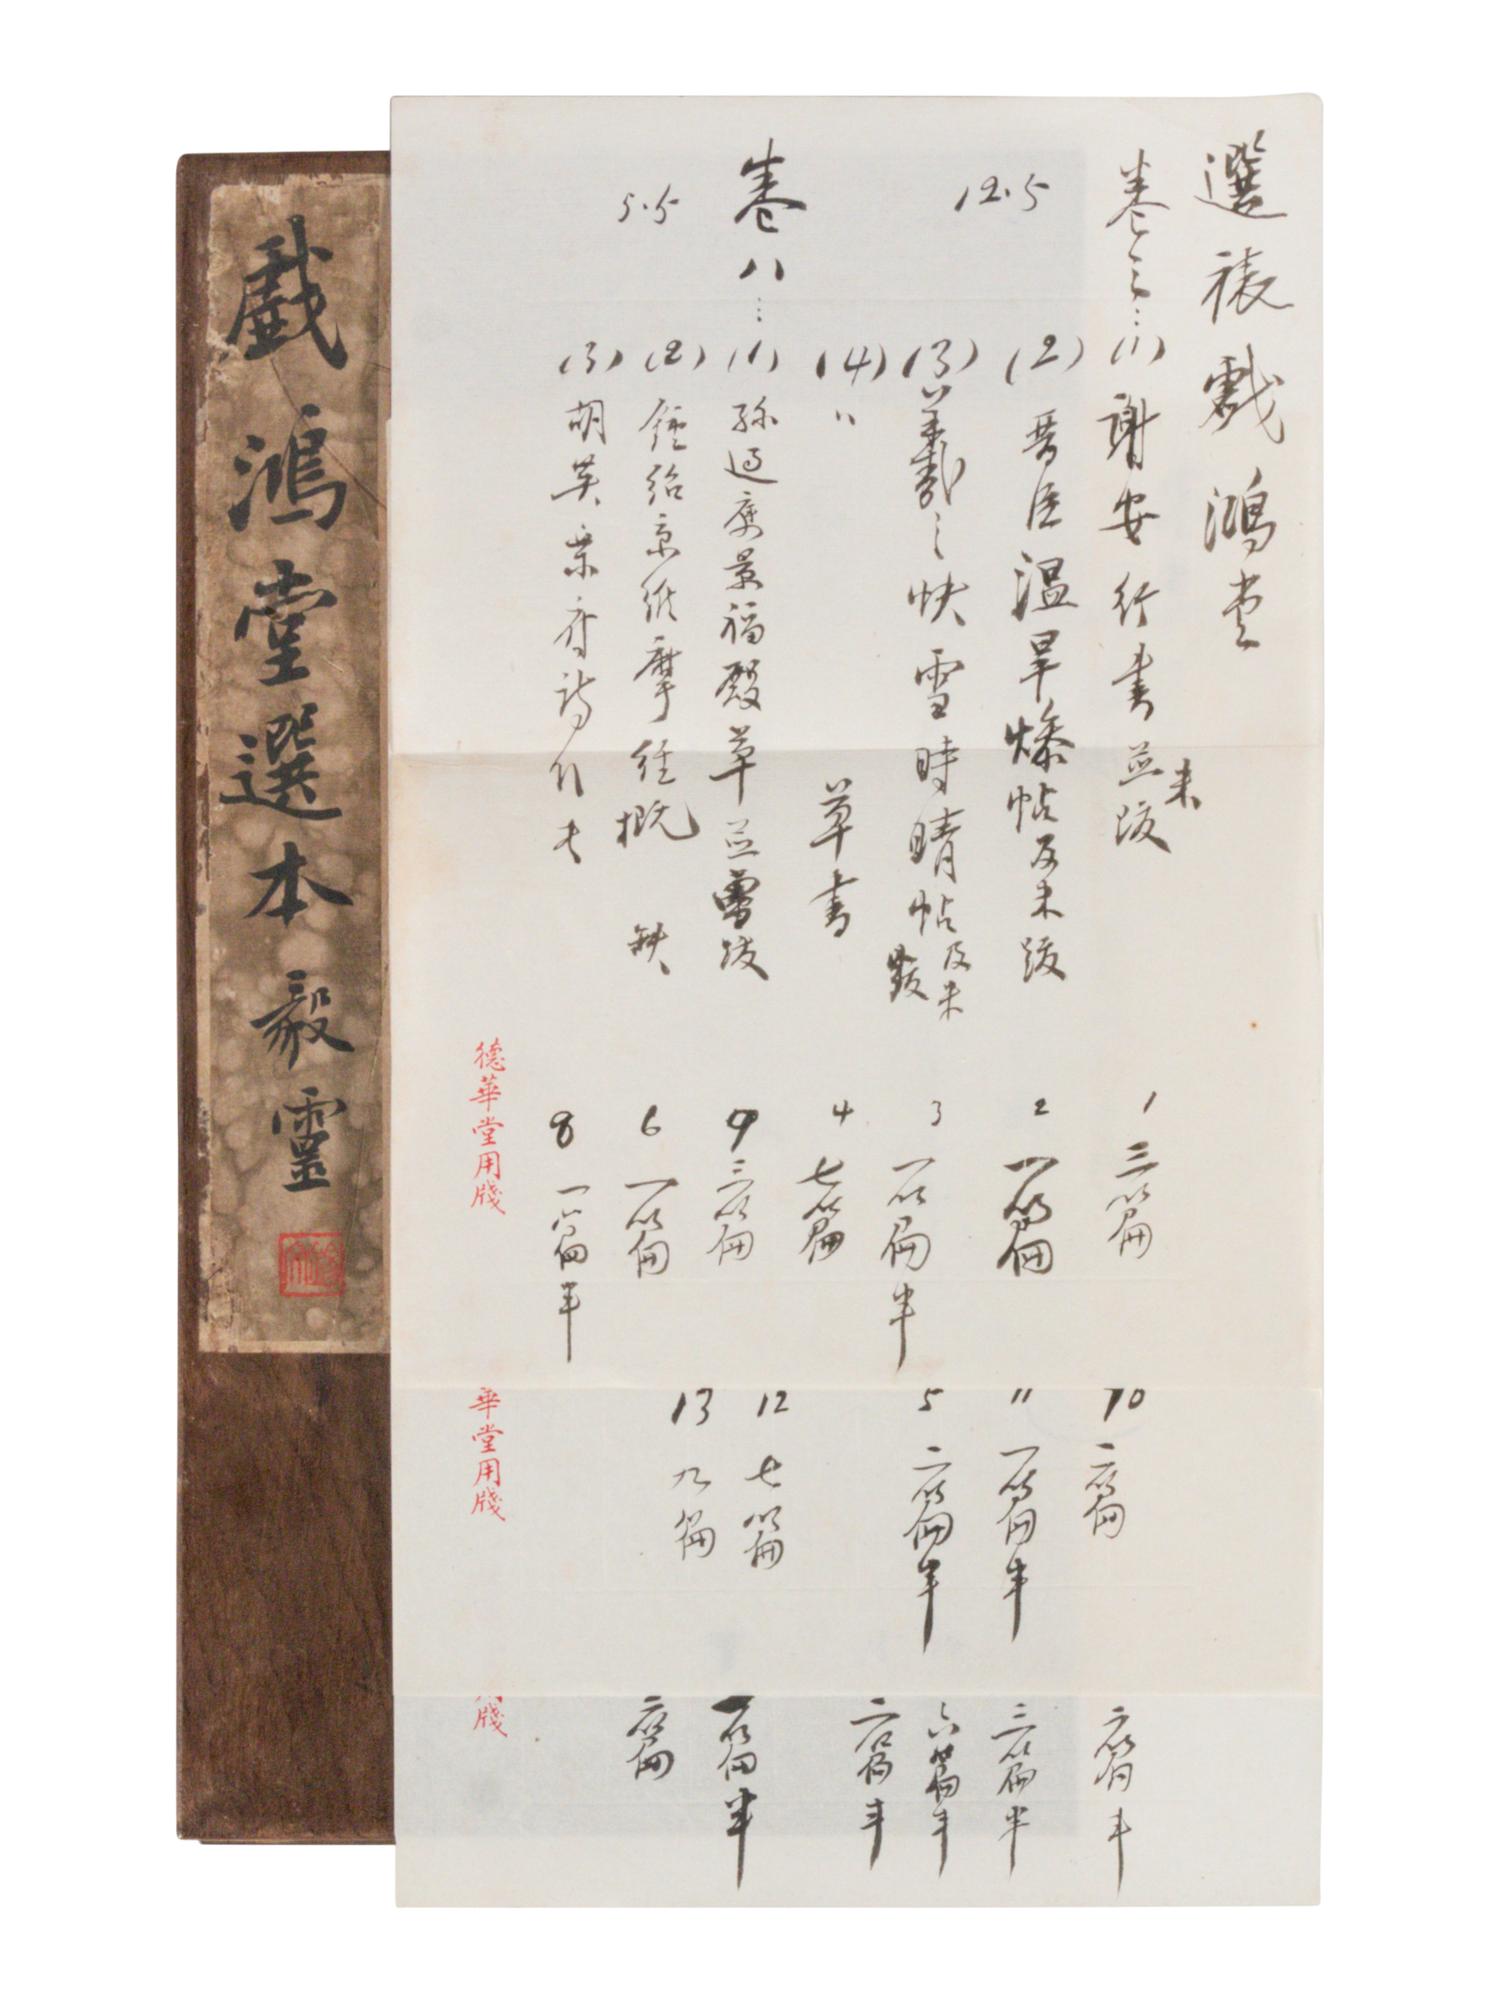 選裱戲鴻堂
卷三…(1)謝安行書並米跋
(2)晋臣温旱燥帖及米跋
12.5
(3)羲之快雪時晴帖及米跋
(4)〃草書
卷八…(1)孫過庭景福殿草並曾跋
(2)鍾紹京維摩經概 缺
5.5
(3)胡英 府詩
1 三篇
2 一篇
3 一篇半
4 七篇
9 三篇
6 一篇
8 一篇半
10 二篇
11 一篇半
5 二篇半
12 七篇
13 九篇
二篇半
三篇半
六篇半
二篇半
一篇半
二篇
德華堂用牋
華堂用牋
牋
戲鴻堂選本 毅靈